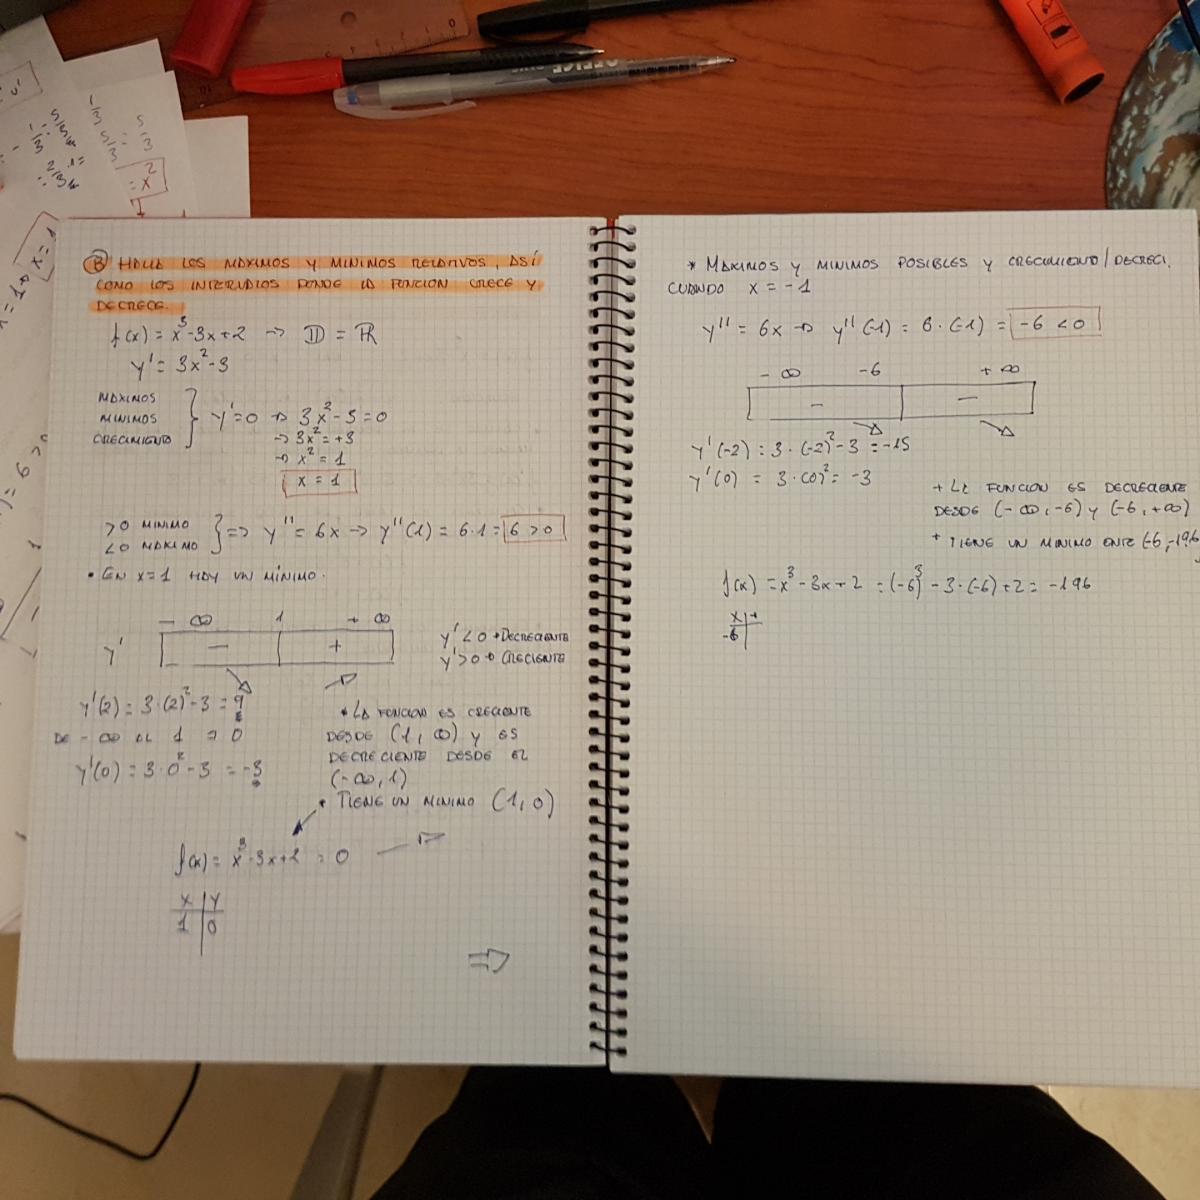 B HALLA LOS MAXIMOS Y MINIMOS RELATIVOS, ASÍ
COMO LOS INTERVALOS DONDE LA FUNCION CRECE Y
DECRECE.
f(x) = x³-3x+2 → D = R
y' = 3x²-3
MAXIMOS
MINIMOS
CRECIMIENTO
y'=0 → 3x²-3=0
→ 3x²=+3
→ x²=1
x = 1
>0 MINIMO
<0 MAXIMO
=> y''= 6x → y''(1) = 6·1 = 6 > 0
• EN x=1 HAY UN MÍNIMO.
- ∞ 1 + ∞
y' - +
y' < 0 → DECRECIENTE
y' > 0 → CRECIENTE
y'(2) = 3·(2)²-3 = 9
DE - ∞ AL 1 = 0
y'(0) = 3·0²-3 = -3
* LA FUNCION ES CRECIENTE
DESDE (1, ∞) Y ES
DECRECIENTE DESDE EL
(-∞, 1)
* TIENE UN MINIMO (1, 0)
f(x) = x³-3x+2 = 0
X Y
1 0
* MAXIMOS Y MINIMOS POSIBLES Y CRECIMIENTO/DECRECI.
CUANDO X = -1
y'' = 6x → y''(-1) = 6·(-1) = -6 < 0
- ∞ -6 + ∞
- -
y'(-2) = 3·(-2)²-3 = -15
y'(0) = 3·(0)² = -3
+ LA FUNCION ES DECRECIENTE
DESDE (-∞, -6) Y (-6, +∞)
+ TIENE UN MINIMO ENTE (-6, -196
f(x) = x³-3x+2 = (-6)³-3·(-6)+2 = -196
X
-6